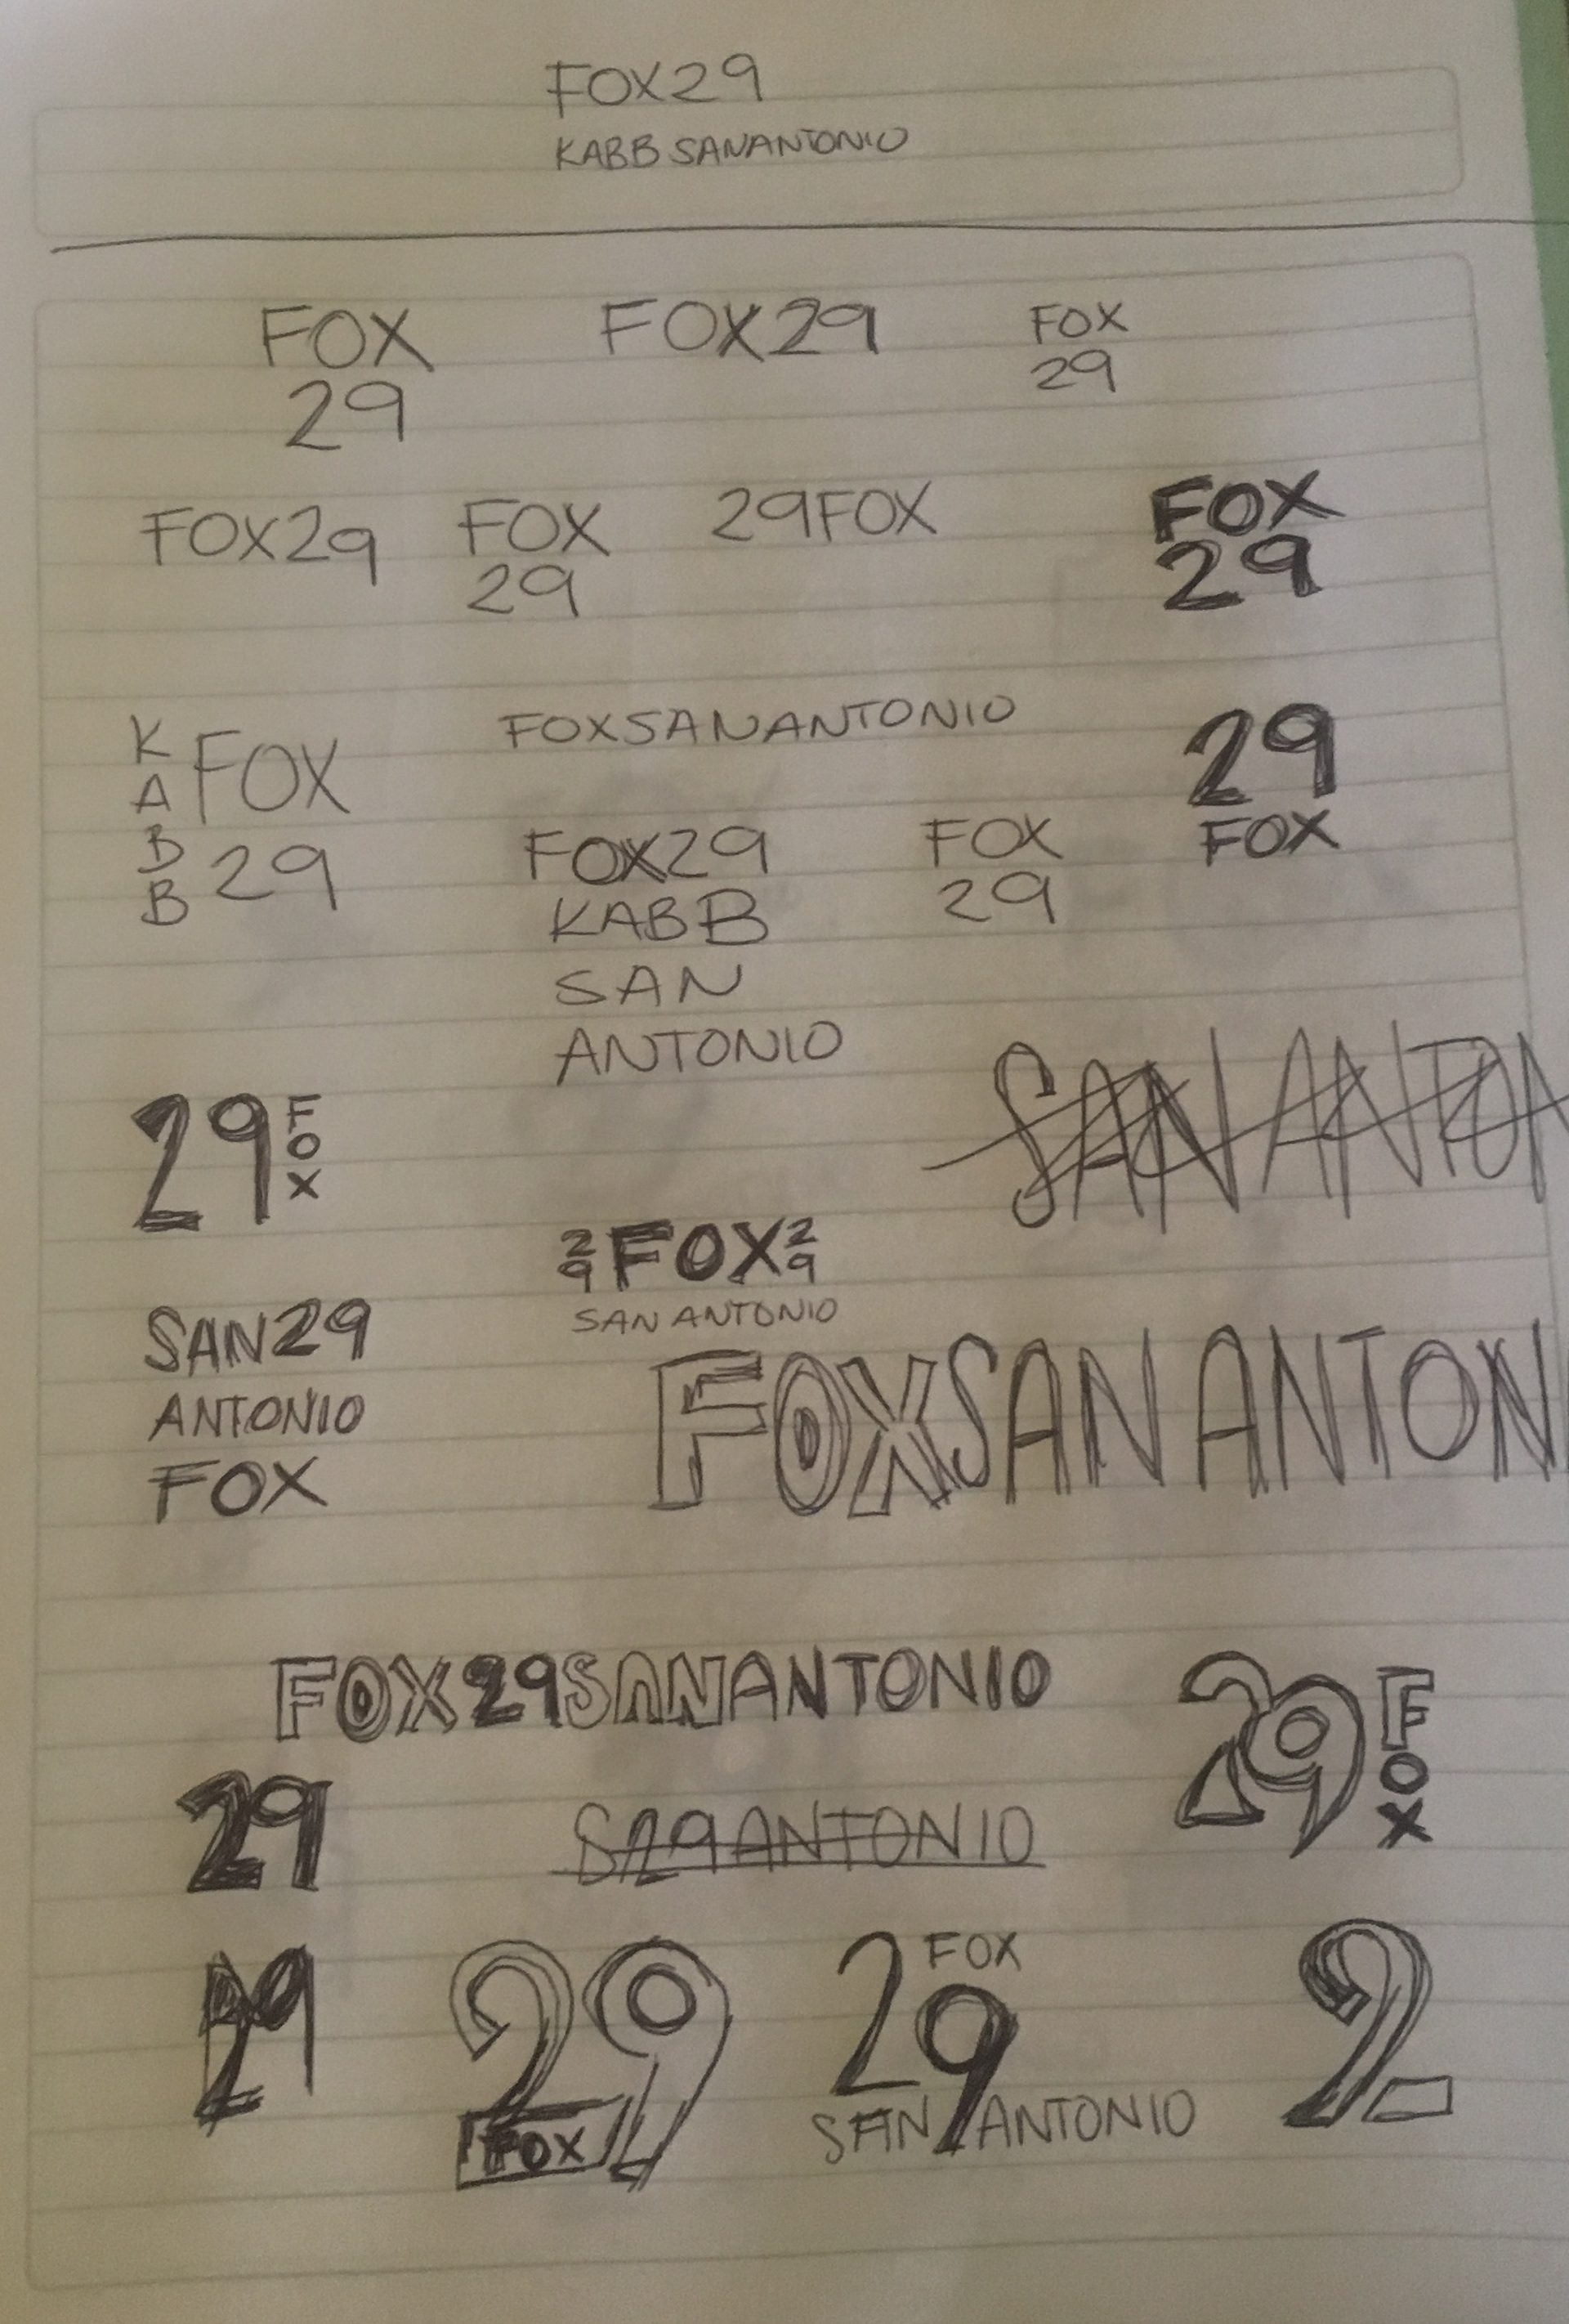 FOX29
KABB SANANTONIO
FOX
29
FOX29
FOX
29
FOX29
FOX
29
29FOX
FOX
29
KABB
FOX
29
FOXSANANTONIO
29
FOX
FOX29
KABB
SAN
ANTONIO
FOX
29
29
FOX
SAN ANTON
29 FOX 29
SAN ANTONIO
SAN29
ANTONIO
FOX
FOXSAN ANTONI
FOX29SANANTONIO
29
FOX
29
S29ANTONIO
29
29
FOX
FOX
29
SAN ANTONIO
2